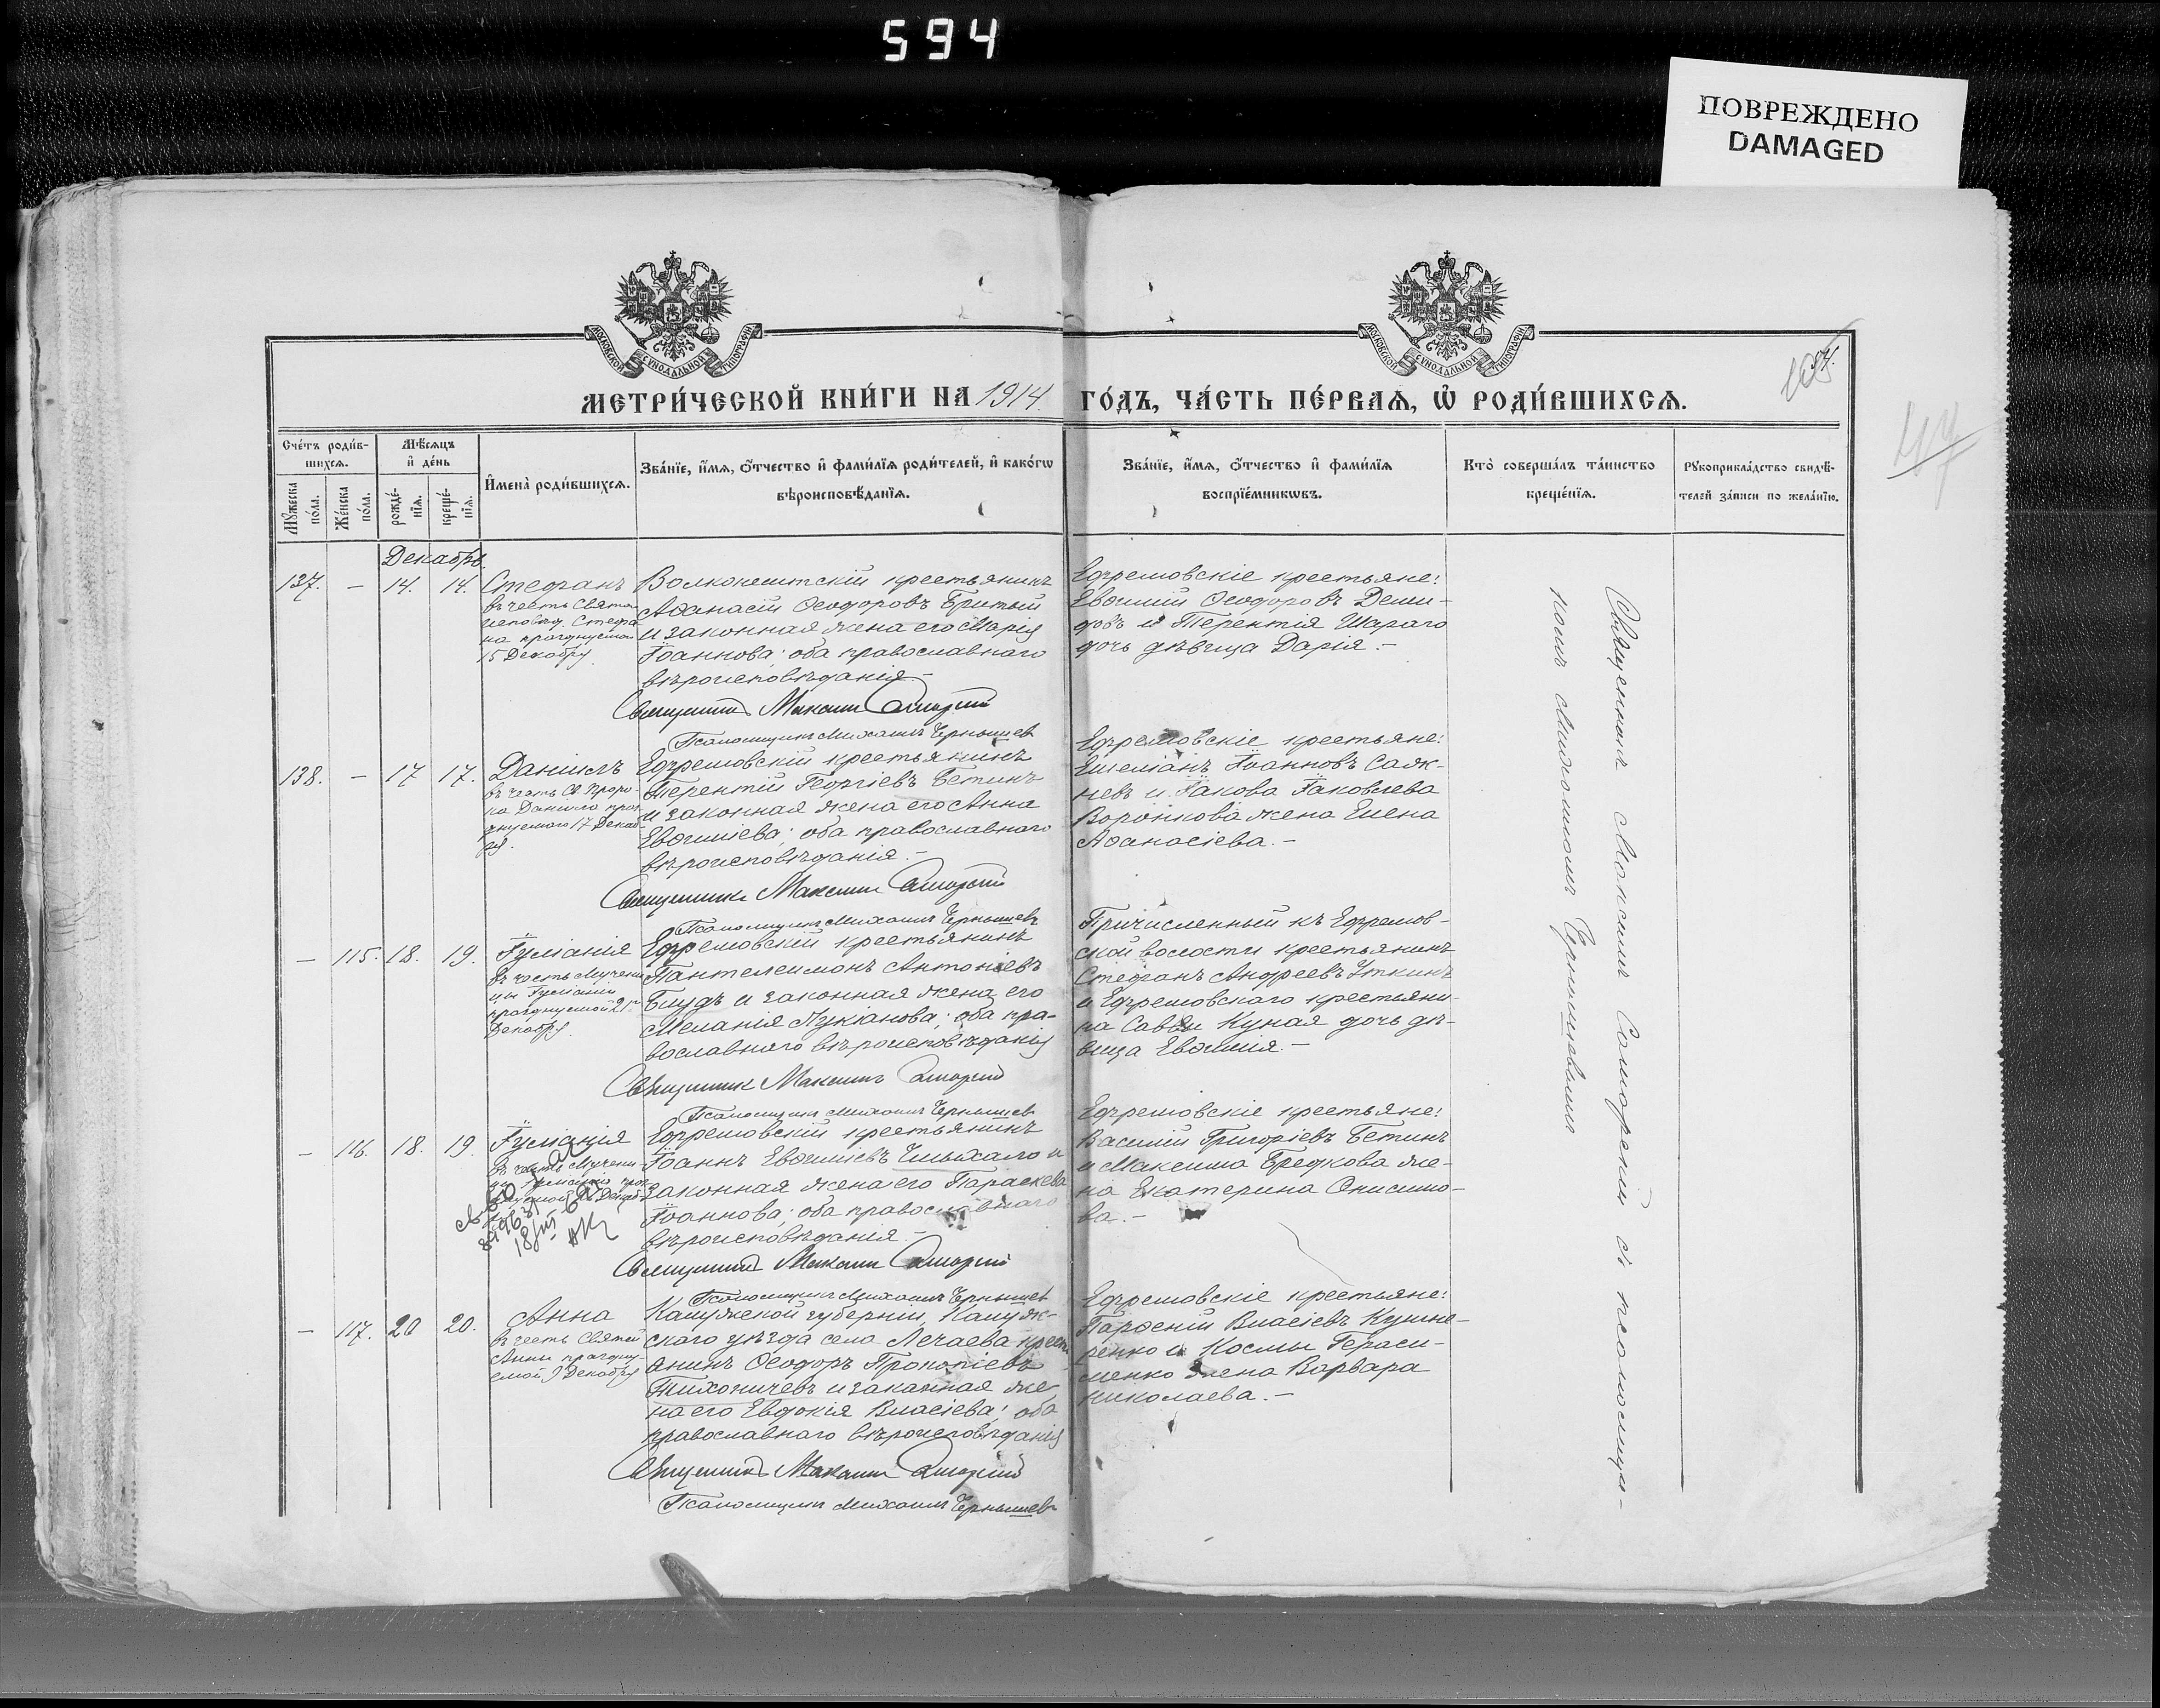 594
ПОВРЕЖДЕНО
DAMAGED
МОСКОВСКОЙ СѴНОДАЛЬНОЙ ТИПОГРАФІИ
МОСКОВСКОЙ СѴНОДАЛЬНОЙ ТИПОГРАФІИ
МЕТРИ́ЧЕСКОЙ КНИ́ГИ НА 1914 ГО́ДЪ, ЧА́СТЬ ПЕ́РВАѦ, Ѡ҆ РОДИ́ВШИХСѦ.
Сче́тъ роди́в-
шихсѧ.
Мѣ́сѧцъ
и҆ де́нь
И҆мена̀ роди́вшихсѧ.
Зва́нїе, и҆́мѧ, ѻ҆́тчество и҆ фами́лїѧ роди́телей, и҆ како́гѡ
вѣроисповѣ́данїѧ.
Зва́нїе, и҆́мѧ, ѻ҆́тчество и҆ фами́лїѧ
воспрїе́мникѡвъ.
Кто̀ соверша́лъ та́инство
креще́нїѧ.
Рꙋкоприкла́дство свидѣ́-
телей за́писи по жела́нїю.
Мꙋ́жеска
по́ла.
Же́нска
по́ла.
рожде́-
нїѧ.
креще́-
нїѧ.
Декабрь
137. — 14. 14. Стефанъ
въ честь Свята
исповѣд. Стефа
на празднуемаго
15 Декабря
Волконештскій крестьянинъ
Аѳанасій Ѳеодоровъ Бритый
и законная жена его Марія
Іоаннова; оба православнаго
вѣроисповѣданія.—
Священникъ Максимъ
Псаломщикъ Михаилъ Чернышевъ
Ефремовскіе крестьяне:
Евѳимій Ѳеодоровъ Деми-
довъ и Терентія Шараго
дочь дѣвица Дарія.—
138. — 17 17. Даніилъ
въ честь Св. Проро-
ка Даніила праз
днуемаго 17 Декаб-
ря.
Ефремовскій крестьянинъ
Терентій Георгіевъ Бетинъ
и законная жена его Анна
Евѳиміева; оба православнаго
вѣроисповѣданія.—
Священникъ Максимъ
Псаломщикъ Михаилъ Чернышевъ
Ефремовскіе крестьяне:
Емеліанъ Іоанновъ Саж-
невъ и Іакова Іаковлева
Воронкова жена Елена
Аѳанасіева.—
— 115. 18. 19. Іуліанія
въ честь Мучени
цы Іуліаніи
празднуемой 21
Декабря.
Ефремовскій крестьянинъ
Пантелеимонъ Антоніевъ
Блудъ и законная жена его
Меланія Лукіанова; оба пра-
вославнаго вѣроисповѣданія
Священникъ Максимъ
Псаломщикъ Михаилъ Чернышевъ
Причисленный къ Ефремов-
ской волости крестьянинъ
Стефанъ Андреевъ Уткинъ
и Ефремовскаго крестьяни-
на Саввы Куная дочь дѣ-
вица Евѳимія.—
— 116. 18. 19. Іуліанія
въ честь Мучени
Ефремовскій крестьянинъ
Іоаннъ Евѳиміевъ и
законная жена его Параскева
Іоаннова; оба православнаго
вѣроисповѣданія.—
Священникъ Максимъ
Псаломщикъ Михаилъ Чернышевъ
Ефремовскіе крестьяне:
Василій Григоріевъ Бетинъ
и Максима Бредкова же-
на Екатерина Онисимо-
ва.—
— 117. 20 20. Анна
въ честь Святой
Анны праздну-
емой 9 Декабря
Калужской губерніи, Калуж-
скаго уѣзда села Нечаева крест
янинъ Ѳеодоръ Прокопіевъ
Тихоничевъ и законная же
на его Евдокія Власіева; оба
православнаго вѣроисповѣданія
Священникъ Максимъ
Псаломщикъ Михаилъ Чернышевъ
Ефремовскіе крестьяне:
Парѳеній Власіевъ Кушне-
ренко и Космы Гераси-
менко жена Варвара
Николаева.—
Священникъ Максимъ съ псаломщи-
комъ Михаиломъ Чернышевымъ